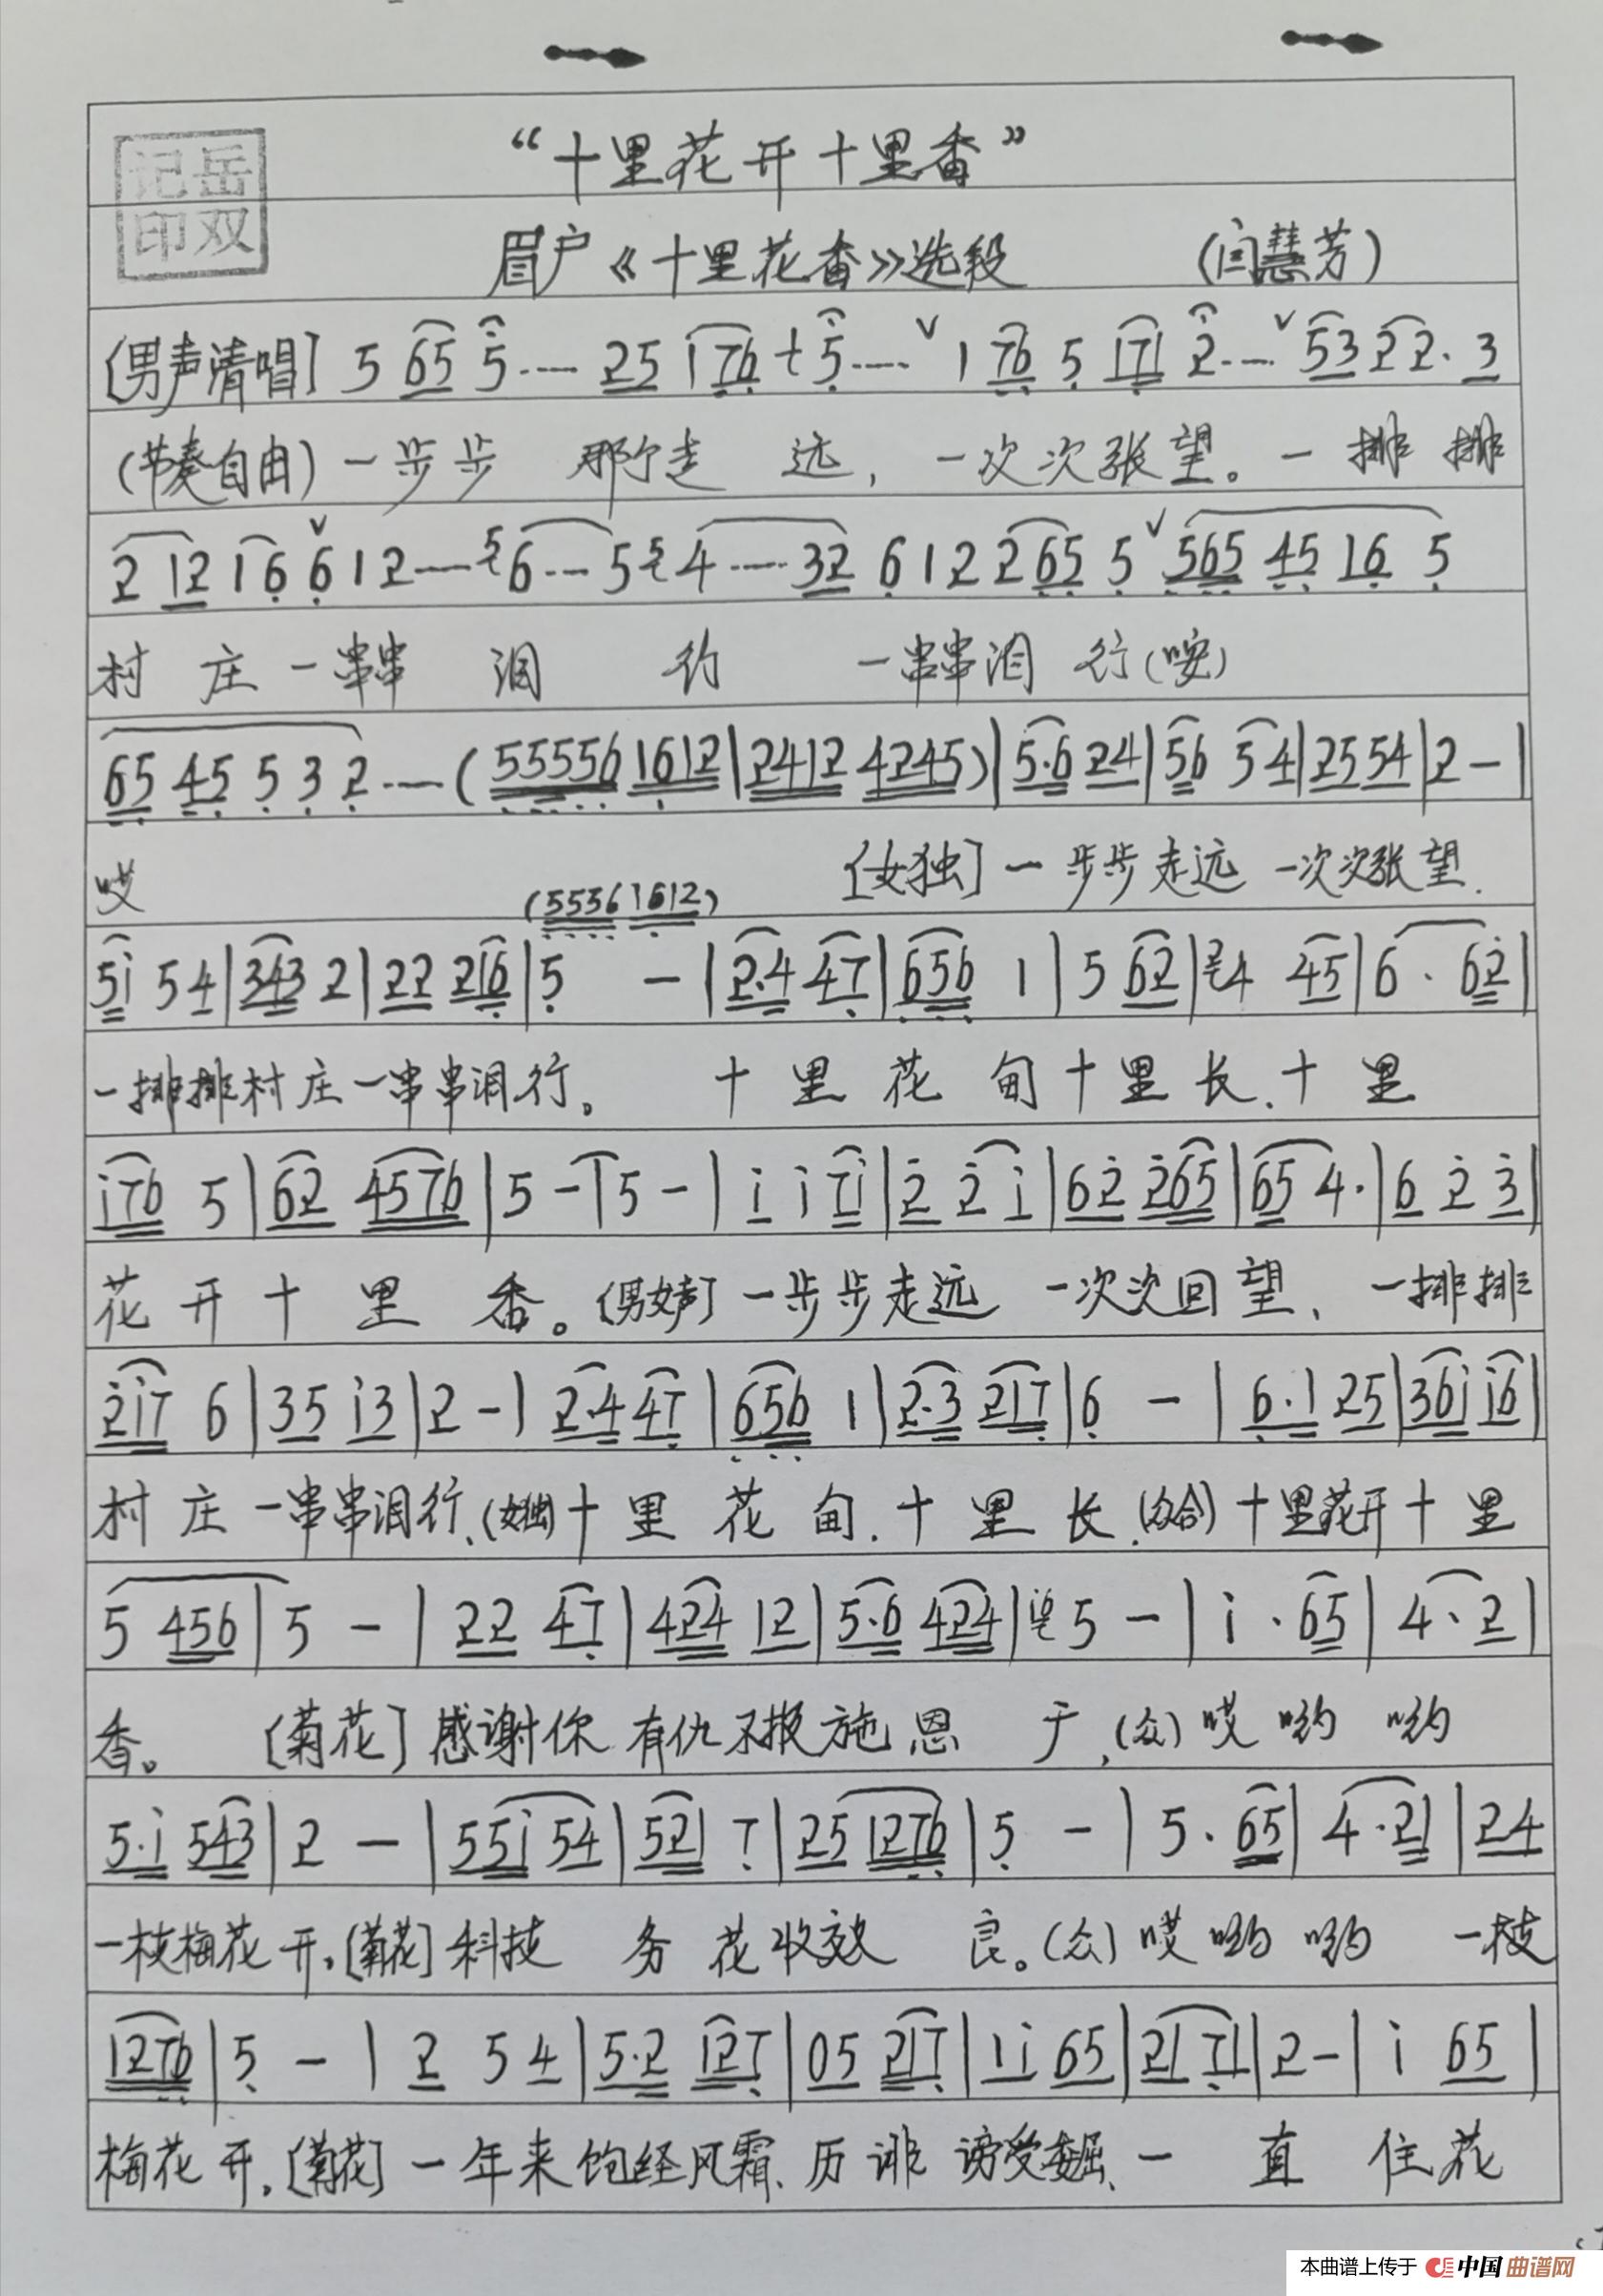 “十里花开十里香”
记岳
印双
眉户《十里花香》选段 (闫慧芳)
[男声清唱] 5 65 5···· 25 176 + 5···· ∨ 1 76 5 171 2···· ∨ 53 22· 3
(节奏自由) 一步步 那个走 远, 一次次张望。一 排 排
2 12 16 ∨ 6 12···· 6···· 5 4···· 32 6 1 2 2 65 5 ∨ 565 45 16 5
村 庄 一串串 泪 行 一串串泪 行(哎)
65 45 5 3 2····(55556 1612|2412 4245)|5·6 24|56 54|25 54|2 -|
哎 [女独] 一步步走远 一次次张望.
(5556 1612)
5i 54|343 2|22 216|5 -|2·4 47|656 1|5 62|4 45|6 · 62|
一排排村庄一串串泪行。 十里花甸十里长、十里
i76 5|62 4576|5 -|5 -|i i 7i|2 2 i|62 265|65 4·|6 2 3|
花开十里香。[男女声] 一步步走远 一次次回望、一排排
2i7 6|35 i3|2 -|2·4 47|656 1|2·3 217|6 -|6·1 25|36i i6|
村庄一串串泪行、(女独)十里花甸、十里长、(众合)十里花开十里
5 456|5 -|22 47|424 12|5·6 424|5 -|i · 65|4 · 2|
香。 [菊花] 感谢你 有仇不报施恩 于,(众) 哎 哟 哟
5·i 543|2 -|55i 54|521 7|25 1276|5 -|5 · 65|4 · 21|24
一枝梅花开。[菊花] 科技 务 花收效 良。(众) 哎哟哟 一枝
1276|5 -|2 5 4|5·2 127|05 217|1i 65|21 71|2 -|i 65|
梅花开。[菊花] 一年来饱经风霜、历诽谤受委屈、一 直 住花
本曲谱上传于 中国曲谱网